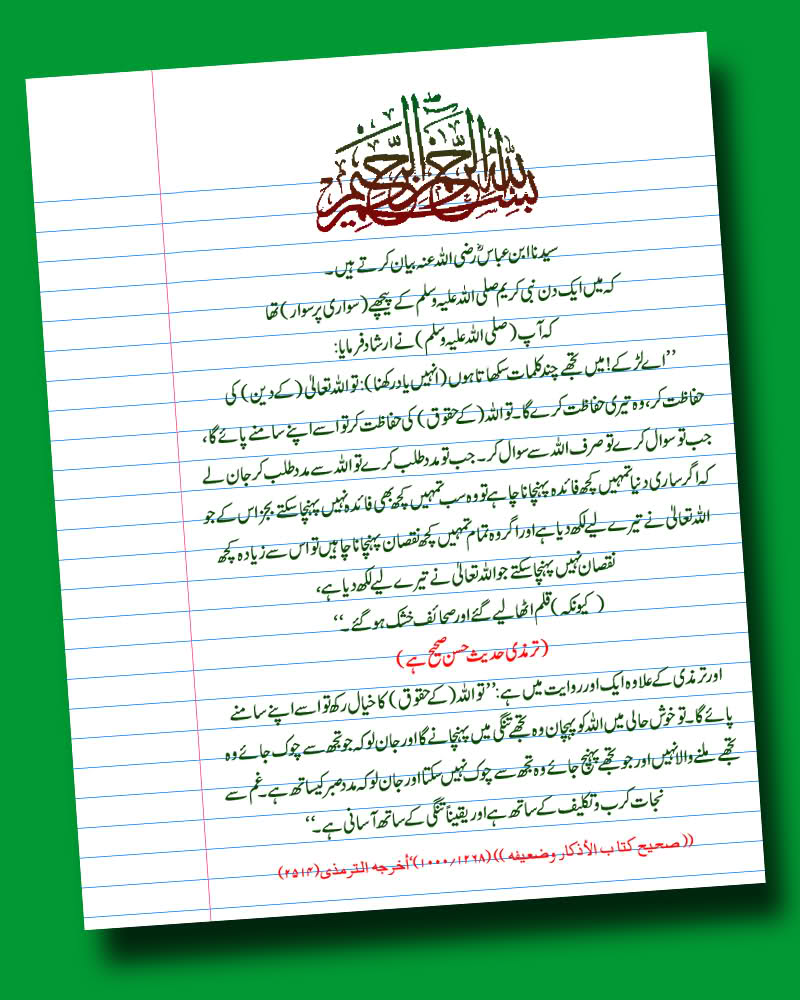 بسم اللہ الرحمن الرحیم
سیدنا ابن عباسؓ رضی اللہ عنہ بیان کرتے ہیں۔
کہ میں ایک دن نبی کریم صلی اللہ علیہ وسلم کے پیچھے (سواری پر سوار) تھا
کہ آپ (صلی اللہ علیہ وسلم) نے ارشاد فرمایا:
’’اے لڑکے! میں تجھے چند کلمات سکھاتا ہوں (انہیں یاد رکھنا): تو اللہ تعالیٰ (کے دین) کی
حفاظت کر، وہ تیری حفاظت کرے گا۔ تو اللہ (کے حقوق) کی حفاظت کر تو اسے اپنے سامنے پائے گا،
جب تو سوال کرے تو صرف اللہ سے سوال کر۔ جب تو مدد طلب کرے تو اللہ سے مدد طلب کر جان لے
کہ اگر ساری دنیا تمہیں کچھ فائدہ پہنچانا چاہے تو وہ سب تمہیں کچھ بھی فائدہ نہیں پہنچا سکتے بجز اس کے جو
اللہ تعالیٰ نے تیرے لیے لکھ دیا ہے اور اگر وہ تمام تمہیں کچھ نقصان پہنچانا چاہیں تو اس سے زیادہ کچھ
نقصان نہیں پہنچا سکتے جو اللہ تعالیٰ نے تیرے لیے لکھ دیا ہے،
(کیونکہ) قلم اٹھا لیے گئے اور صحائف خشک ہو گئے۔‘‘
(ترمذی حدیث حسن صحیح ہے)
اور ترمذی کے علاوہ ایک اور روایت میں ہے: ’’تو اللہ (کے حقوق) کا خیال رکھ تو اسے اپنے سامنے
پائے گا۔ تو خوش حالی میں اللہ کو پہچان وہ تجھے تنگی میں پہچانے گا اور جان لو کہ جو تجھ سے چوک جائے وہ
تجھے ملنے والا نہیں اور جو تجھے پہنچ جائے وہ تجھ سے چوک نہیں سکتا اور جان لو کہ مدد صبر کیساتھ ہے۔ غم سے
نجات کرب و تکلیف کے ساتھ ہے اور یقیناً تنگی کے ساتھ آسانی ہے۔‘‘
((صحيح كتاب الأذكار وضعيفه)) (۱۲۶۸/۱۰۰۰)‘أخرجه الترمذى (۲۵۱۴)